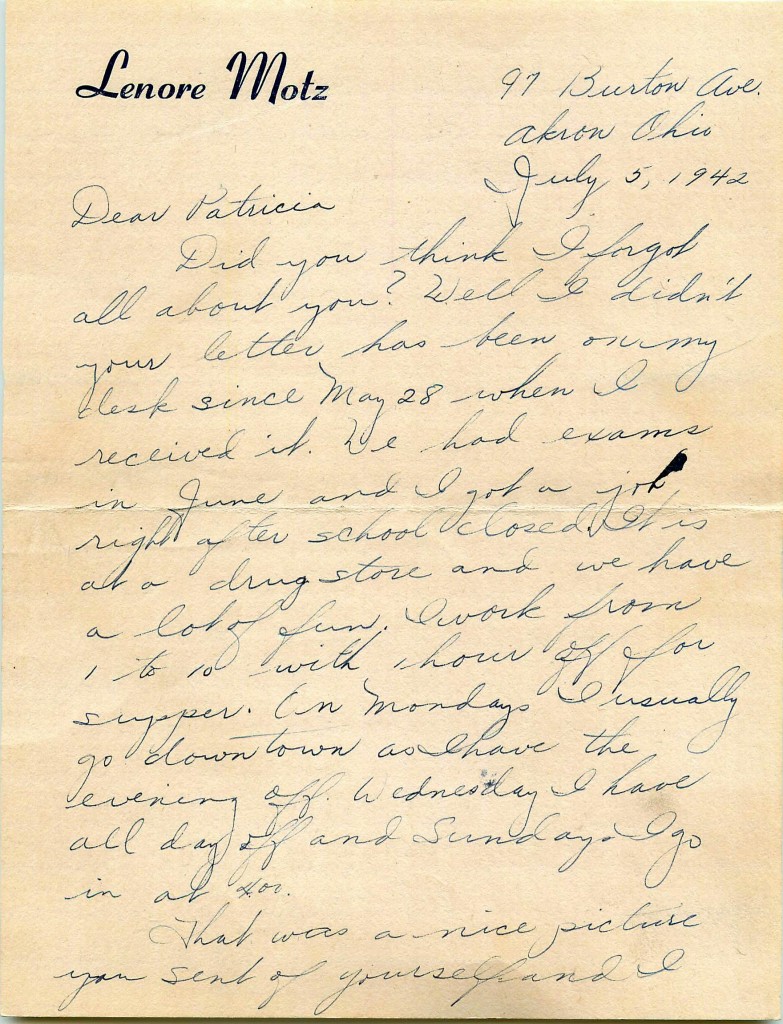 Lenore Motz
97 Burton Ave.
Akron Ohio
July 5, 1942
Dear Patricia
Did you think I forgot
all about you? Well I didn't
your letter has been on my
desk since May 28 when I
received it. We had exams
in June and I got a job
right after school closed. It is
at a drug store and we have
a lot of fun. I work from
1 to 10 with 1 hour off for
supper. On Mondays I usually
go downtown as I have the
evening off. Wednesday I have
all day off and Sundays I go
in at 4:00.
That was a nice picture
you sent of yourself and I